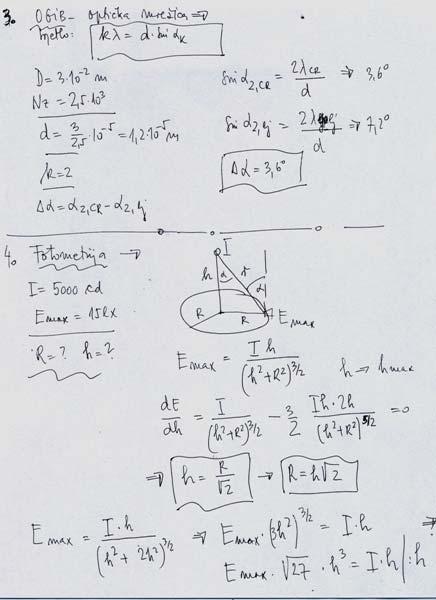 3. OGIB - optička mrežica ⇒
kλ = d·sin α_k
D = 3·10⁻² m
Nz = 2,5·10³
d = 3/2,5 ·10⁻⁵ = 1,2·10⁻⁵ m
k = 2
Δα = α_2,CR - α_2,lj
sin α_2,CR = 2λ_CR/d ⇒ 3,6°
sin α_2,lj = 2λ_lj/d ⇒ 7,2°
Δα = 3,6°
4. Fotometrija →
I = 5000 cd
E_max = 15 lx
R = ? h = ?
I
h α r
α
R R E_max
E_max = I h/(h²+R²)^3/2 h ⇒ h_max
dE/dh = I/(h²+R²)^3/2 - 3/2 Ih·2h/(h²+R²)^5/2 = 0
⇒ h = R/√2 → R = h√2
E_max = I·h/(h² + 2h²)^3/2 ⇒ E_max·(3h²)^3/2 = I·h ⇒
E_max·√27·h³ = I·h /:h